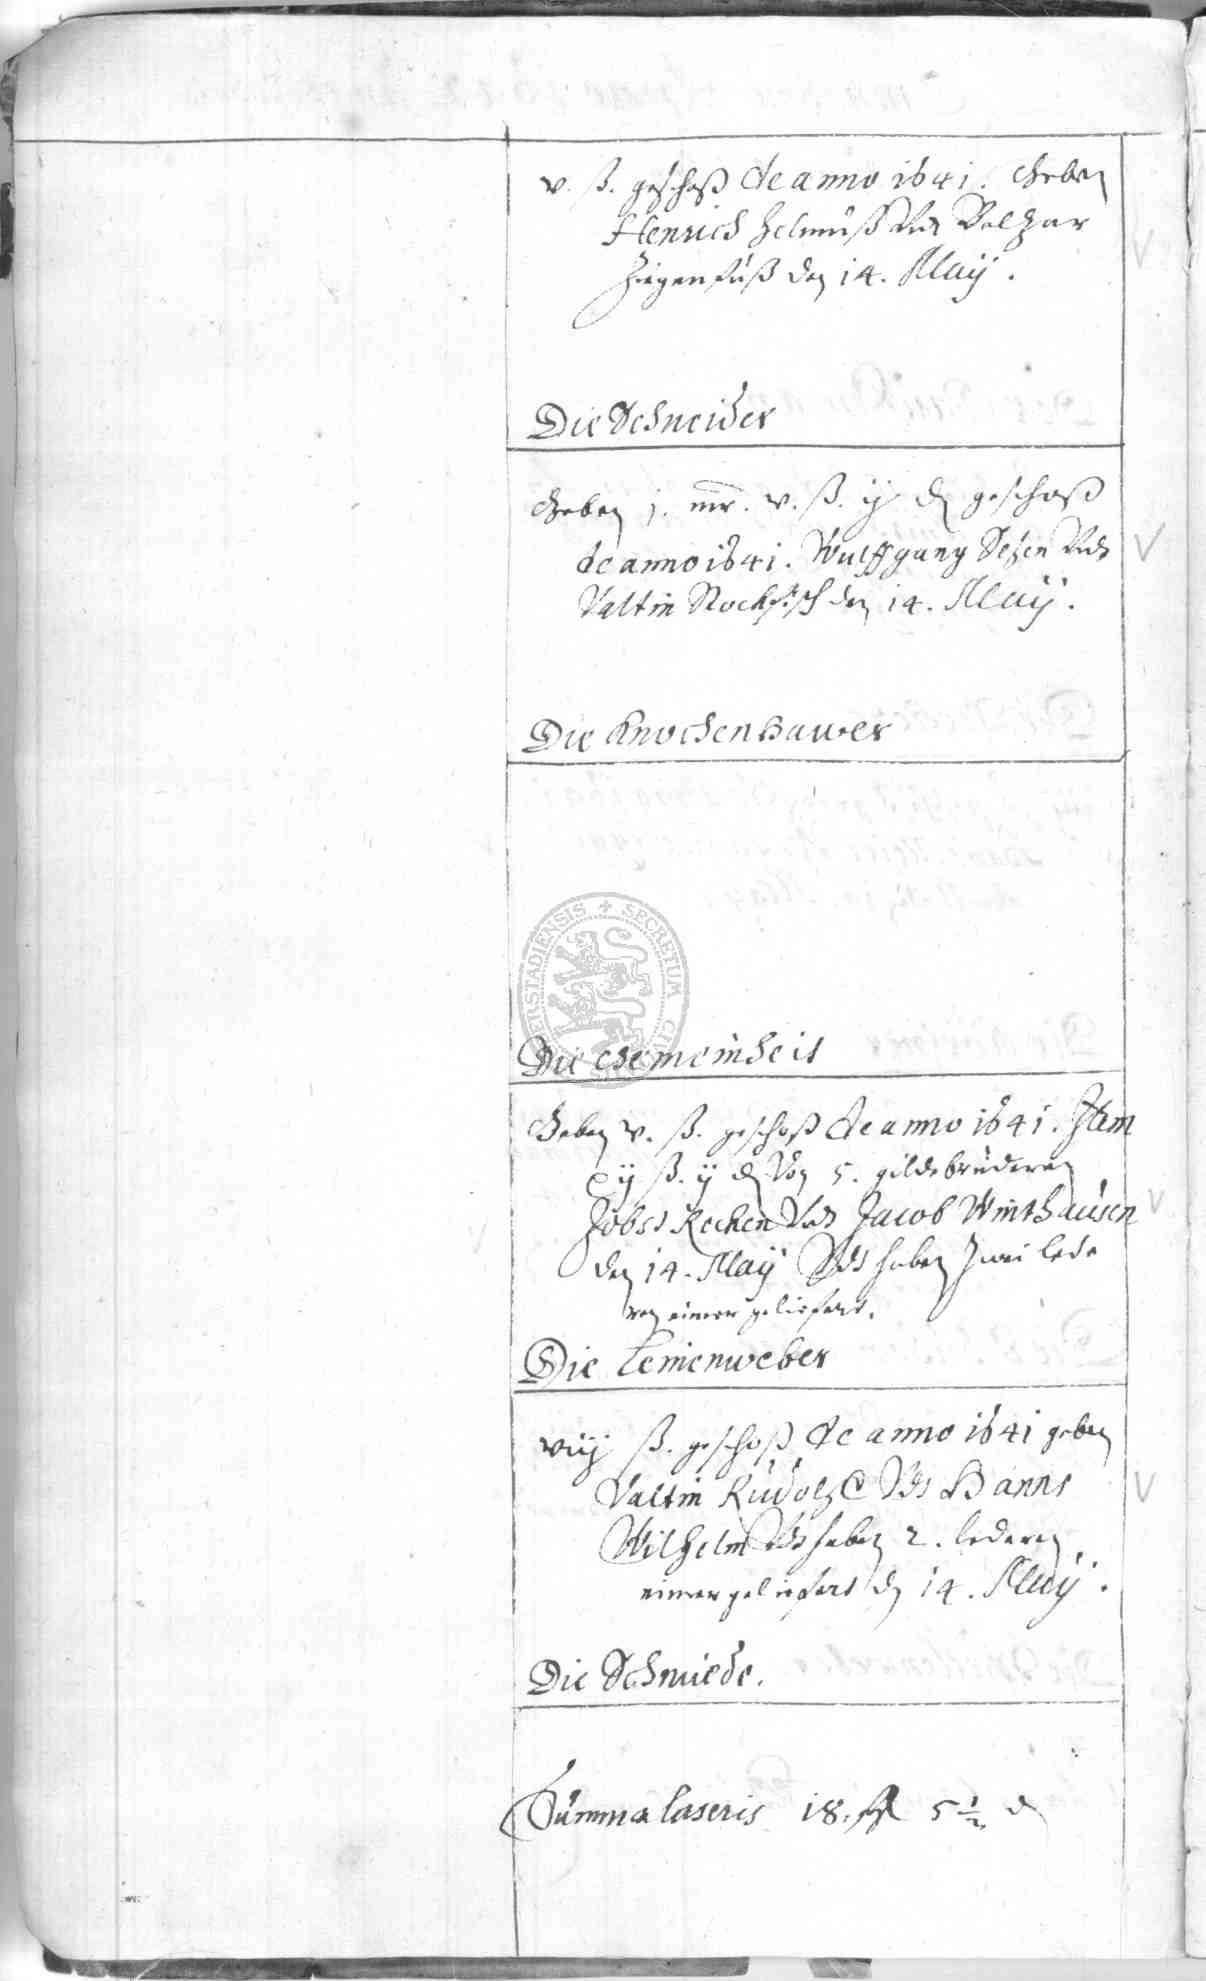 v. ß. geschoß de anno 1641. Geben
Henrich Helmuß Vndt Balzar
Ziegenfuß den 14. Maÿ.
Die Schneider
Geben j. mr. v. ß. ij d geschoß
de anno 1641. Wulffgang Setzen Vndt
Valtin Stockfisch den 14. Maÿ.
Die Knochenhawer
Die Gemeinheit
Geben v. ß. geschoß de anno 1641. Item
ij ß. ij d Von 5. gildebrüderen
Jobst Recken Vndt Jacob Winthausen
den 14. Maÿ Vndt haben zwei lede
ren eimer geliefert.
Die Leinenweber
viij ß. geschoß de anno 1641 geben
Valtin Rudolph Vndt Hanns
Wilhelm Vndt haben 2. lederen
eimer geliefert d 14. Maÿ.
Die Schmiede.
Summa lateris 18. ß 5 1/2 d
SECRETUM